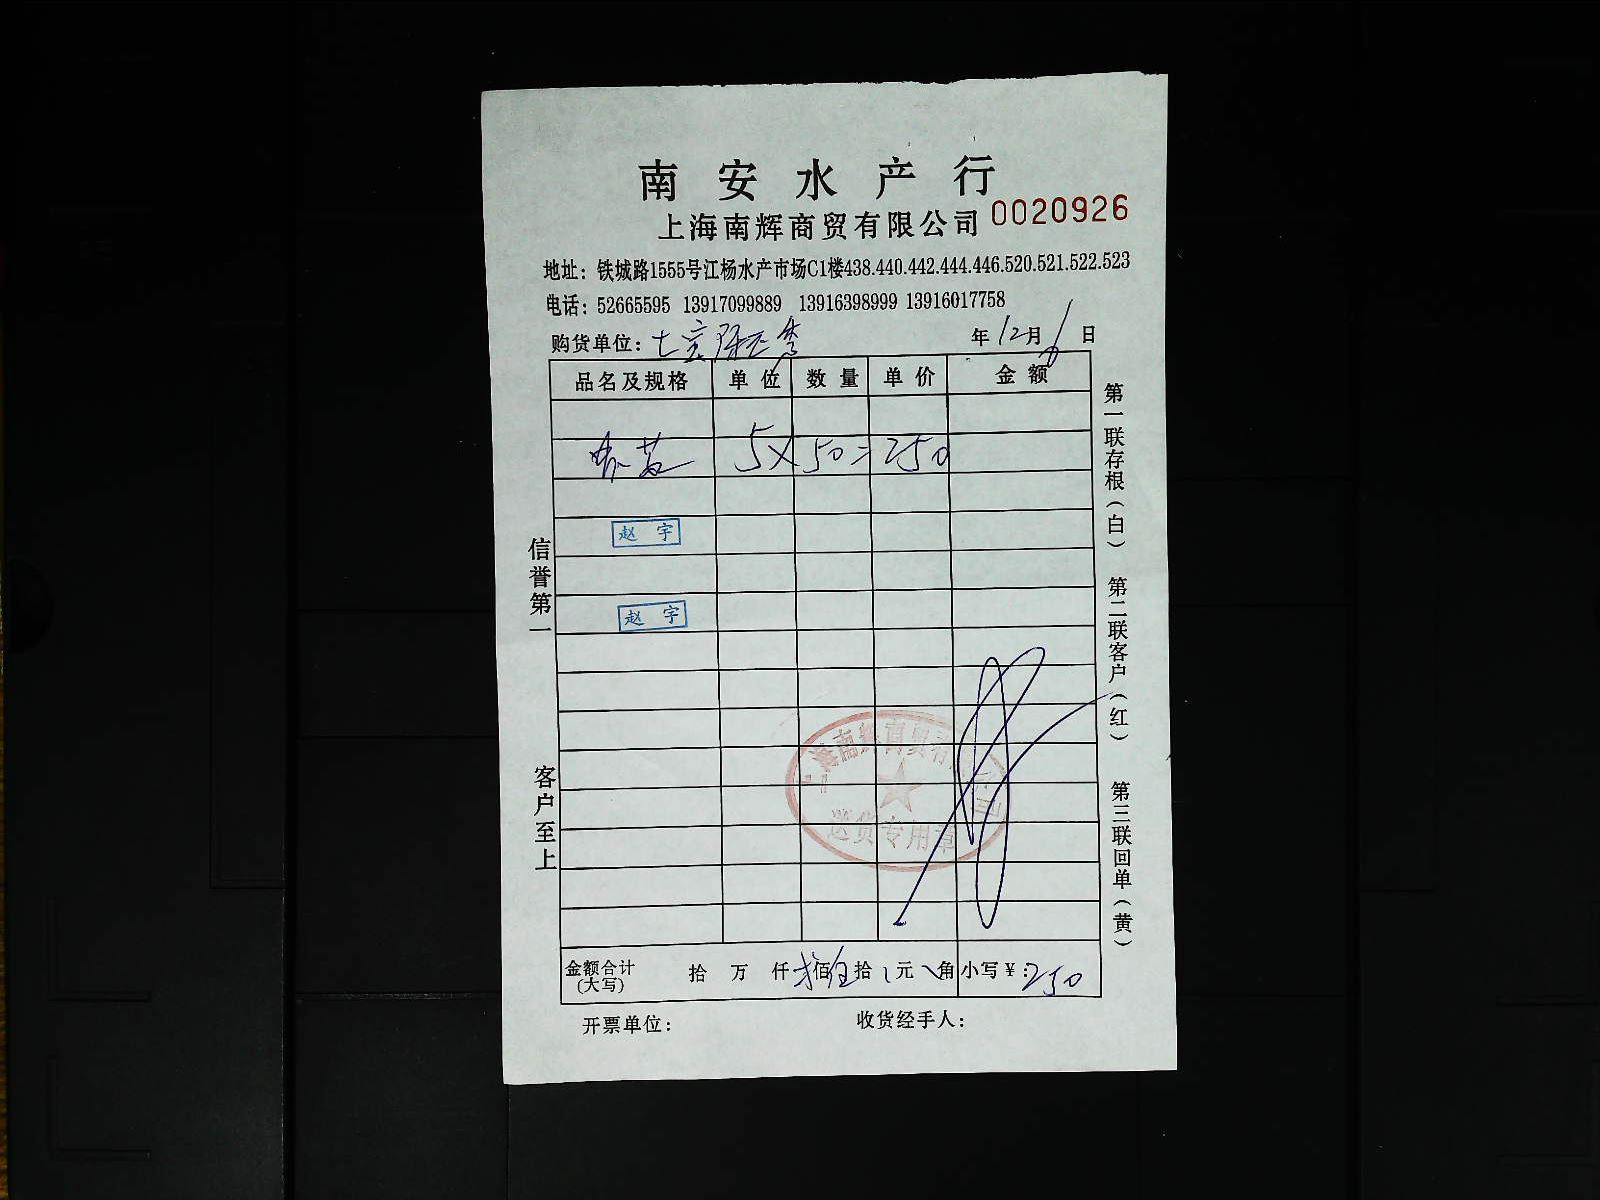 南安水产行
上海南辉商贸有限公司 0020926
地址：铁城路1555号江杨水产市场C1楼438.440.442.444.446.520.521.522.523
电话：52665595 13917099889 13916398999 13916017758
购货单位：七宝 年12月 日
品名及规格 单位 数量 单价 金额
5×50=250
赵宇
赵宇
信誉第一
客户至上
第一联存根（白） 第二联客户（红） 第三联回单（黄）
上海南辉商贸有限公司
送货专用章
金额合计(大写) 拾 万 仟 贰佰伍拾 元 角 小写￥：250
开票单位： 收货经手人：